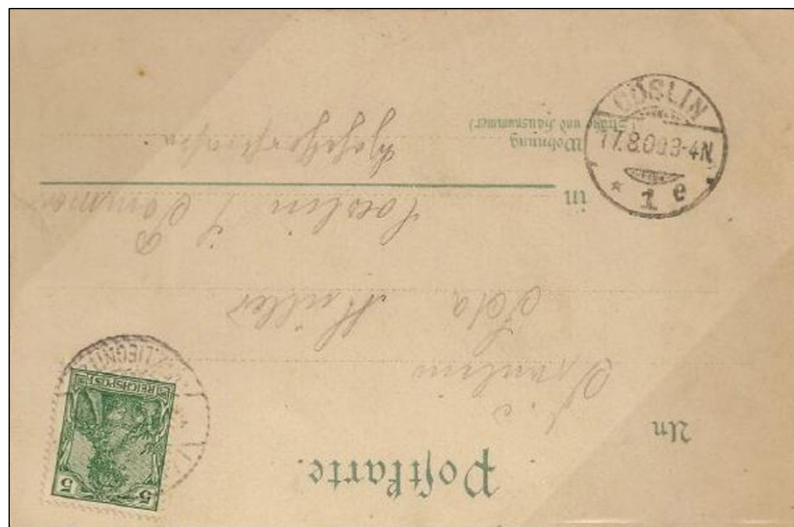 Postkarte.
An
Fräulein
Ida Müller
in Coeslin i Pommer
Wohnung
(Straße und Hausnummer)
CÖSLIN
17.8.00.3-4N.
* 1 e *
REICHSPOST
5 5
LIEGNI